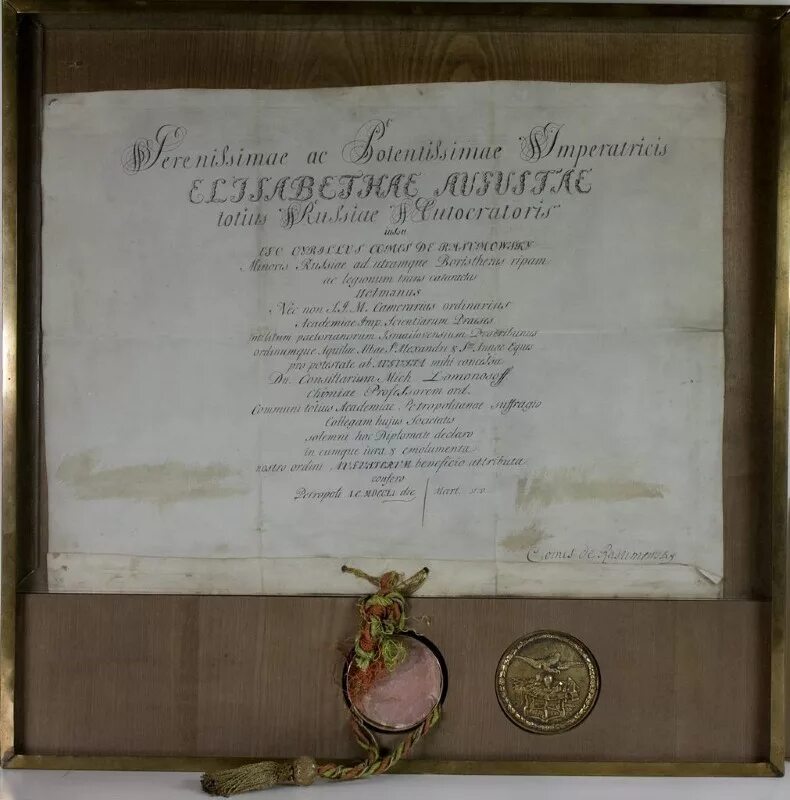 Serenissimae ac Potentissimae Imperatricis
ELISABETHAE AUGUSTAE
totius Russiae Autocratoris
iussu
EGO CYRILLUS COMES DE RASUMOWSKY
Minoris Russiae ad utramque Boristhenis ripam
ac legionum trans cataractas
Hetmanus
Nec non S. I. M. Camerarius ordinarius
Academiae Imp. Scientiarum Praeses
militum praetorianorum Ismailoviensium Protribunus
ordinumque Aquilae Albae S. Alexandri & S. Annae Eques
pro potestate ab AUGUSTA mihi concessa
Dn. Consiliarium Mich. Lomonosoff
Chimiae Professorem ord.
Communi totius Academiae Petropolitanae suffragio
Collegam hujus Societatis
solemni hoc Diplomate declaro
in eumque iura & emolumenta
nostro ordini AUGUSTORUM beneficio attributa
confero
Petropoli MDCCLI die Mart.
Comes de Rasumowsky